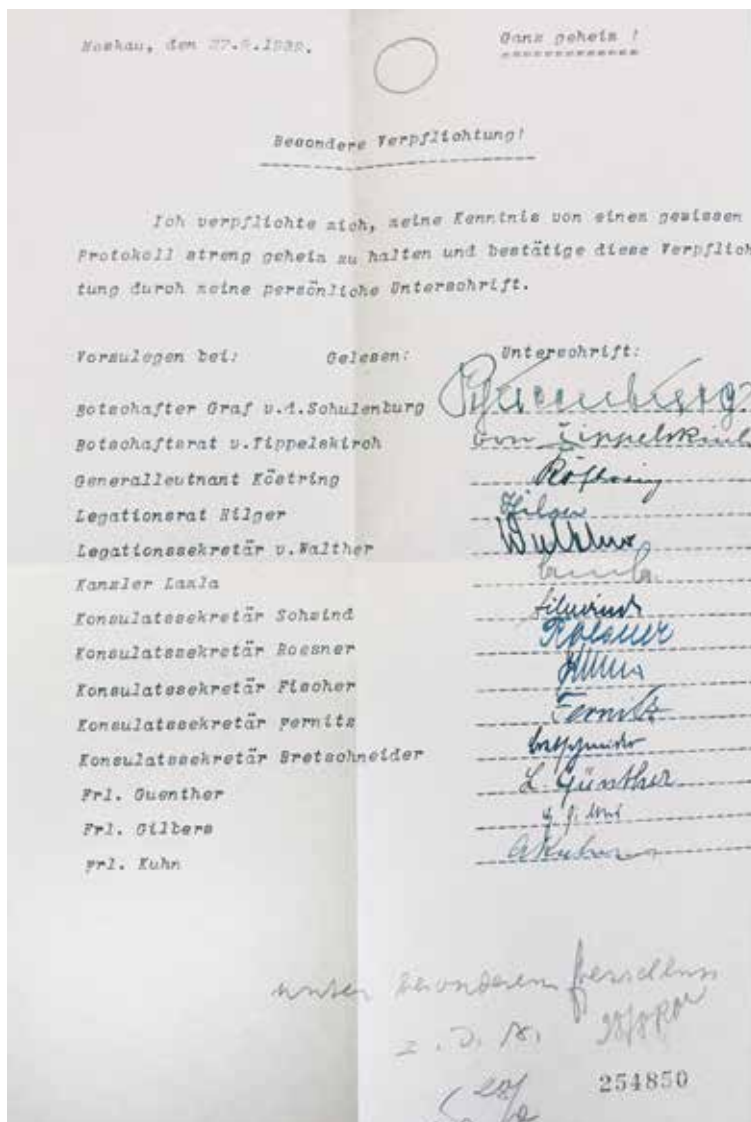 Moskau, den 27.8.1939.
Ganz geheim !
Besondere Verpflichtung!
Ich verpflichte mich, meine Kenntnis von einem gewissen
Protokoll streng geheim zu halten und bestätige diese Verpflich
tung durch meine persönliche Unterschrift.
Vorzulegen bei: Gelesen: Unterschrift:
Botschafter Graf v.d.Schulenburg Schulenburg
Botschaftsrat v.Tippelskirch von Tippelskirch
Generalleutnant Köstring Köstring
Legationsrat Hilger Hilger
Legationssekretär v.Walther Walther
Kanzler Lamla Lamla
Konsulatssekretär Schmind
Konsulatssekretär Roesner
Konsulatssekretär Fischer
Konsulatssekretär Pernitz
Konsulatssekretär Bretschneider Bretschneider
Frl. Guenther L. Günther
Frl. Gilbers
Frl. Kuhn AKuhn
unter besonderem Verschluss
z. D. A.
254850